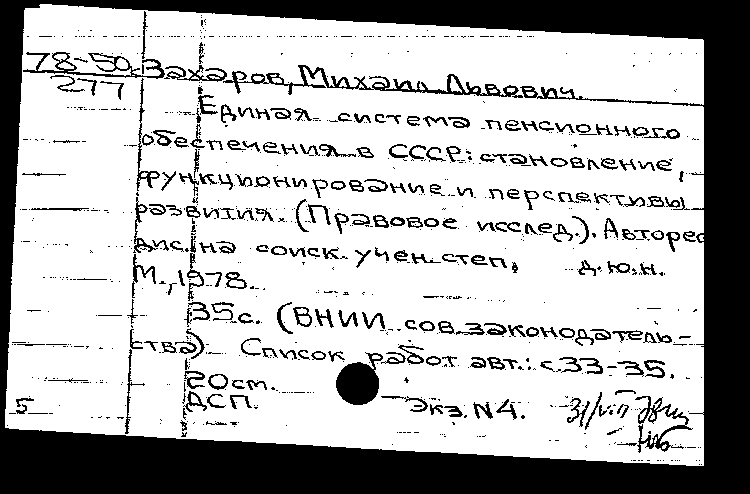 78-50 Захаров, Михаил Львович.
277
Единая система пенсионного
обеспечения в СССР: становление,
функционирование и перспективы
развития. (Правовое исслед.). Авторес
дис. на соиск. учен. степ, д.ю.н.
М., 1978.
35с. (ВНИИ сов. законодатель-
ства) Список работ авт.: с.33-35.
20см.
5 ДСП. Экз. N4. 31/VIII